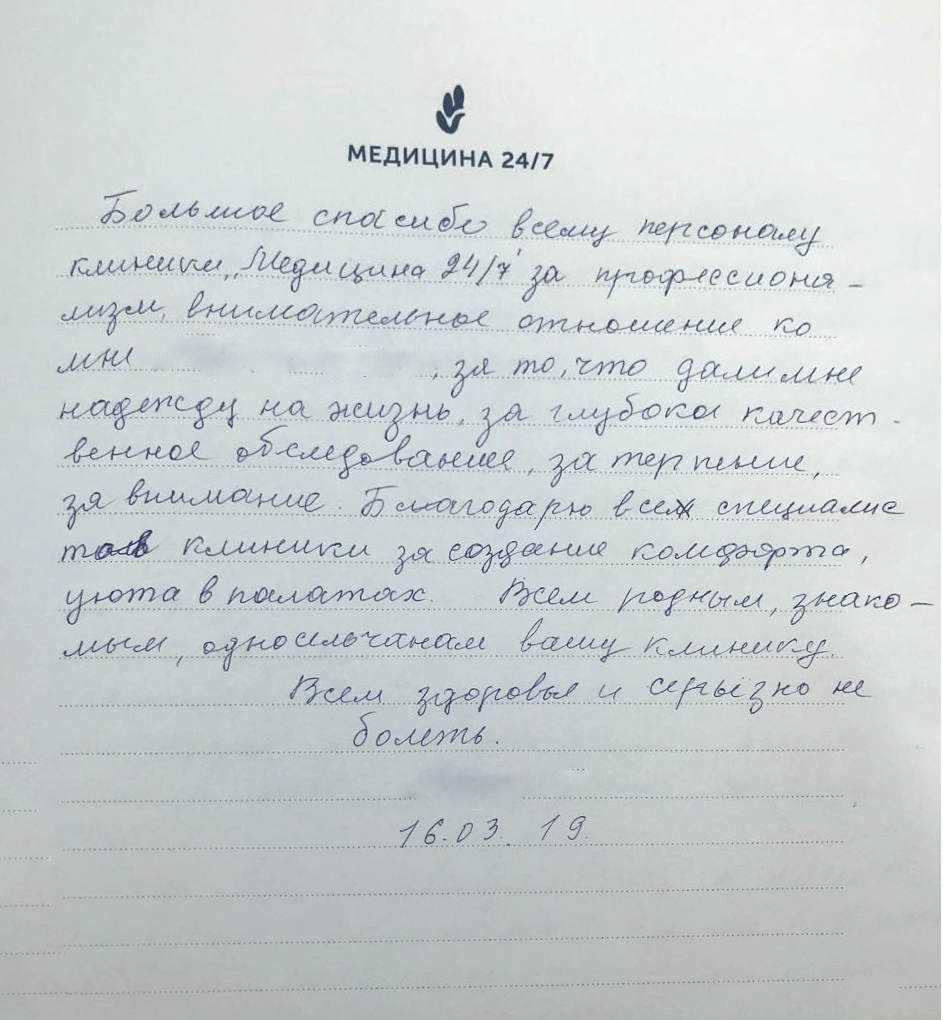 МЕДИЦИНА 24/7
Большое спасибо всему персоналу
клиники „Медицина 24/7" за профессиона-
лизм, внимательное отношение ко
мне , за то, что дали мне
надежду на жизнь, за глубоко качест-
венное обследование, за терпение,
за внимание. Благодарю всех специалис
тов клиники за создание комфорта,
уюта в палатах. Всем родным, знако-
мым, односельчанам вашу клинику.
Всем здоровья и серьёзно не
болеть.
16.03. 19.